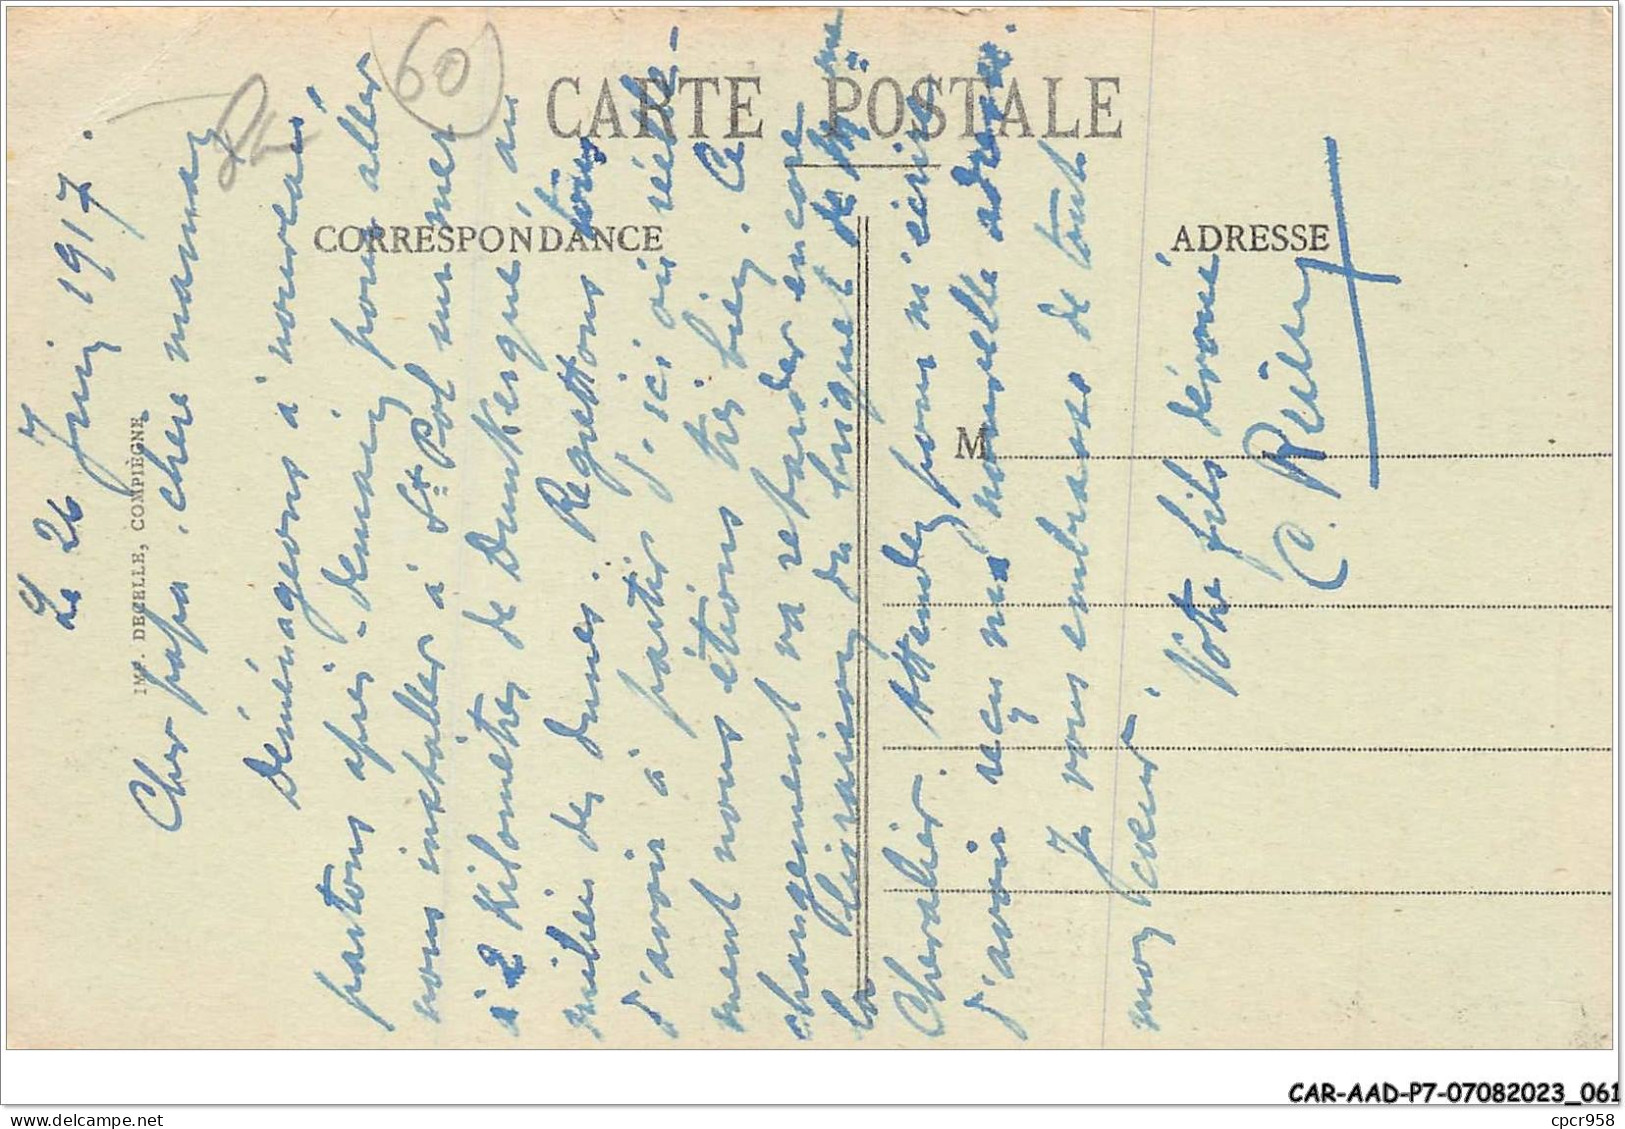 CARTE POSTALE
CORRESPONDANCE
ADRESSE
M
IMP. DECELLE, COMPIÈGNE
60
Le 26 Juin 1917.
Cher papa, chère maman
Déménageons à nouveau
partons après-demain pour aller
nous installer à St Pol sur mer
à 2 kilomètres de Dunkerque, au
milieu des dunes. Regrettons tous
d'avoir à partir d'ici où réelle-
ment nous étions très bien. Ce
changement va retarder encore
la livraison du briquet de Mme
Chevalier. Attendez pour m'écrire
d'avoir reçu ma nouvelle adresse.
Je vous embrasse de tout
mon cœur.
Votre fils dévoué
C.
CAR-AAD-P7-07082023_061
delcampe.net
cpcr958